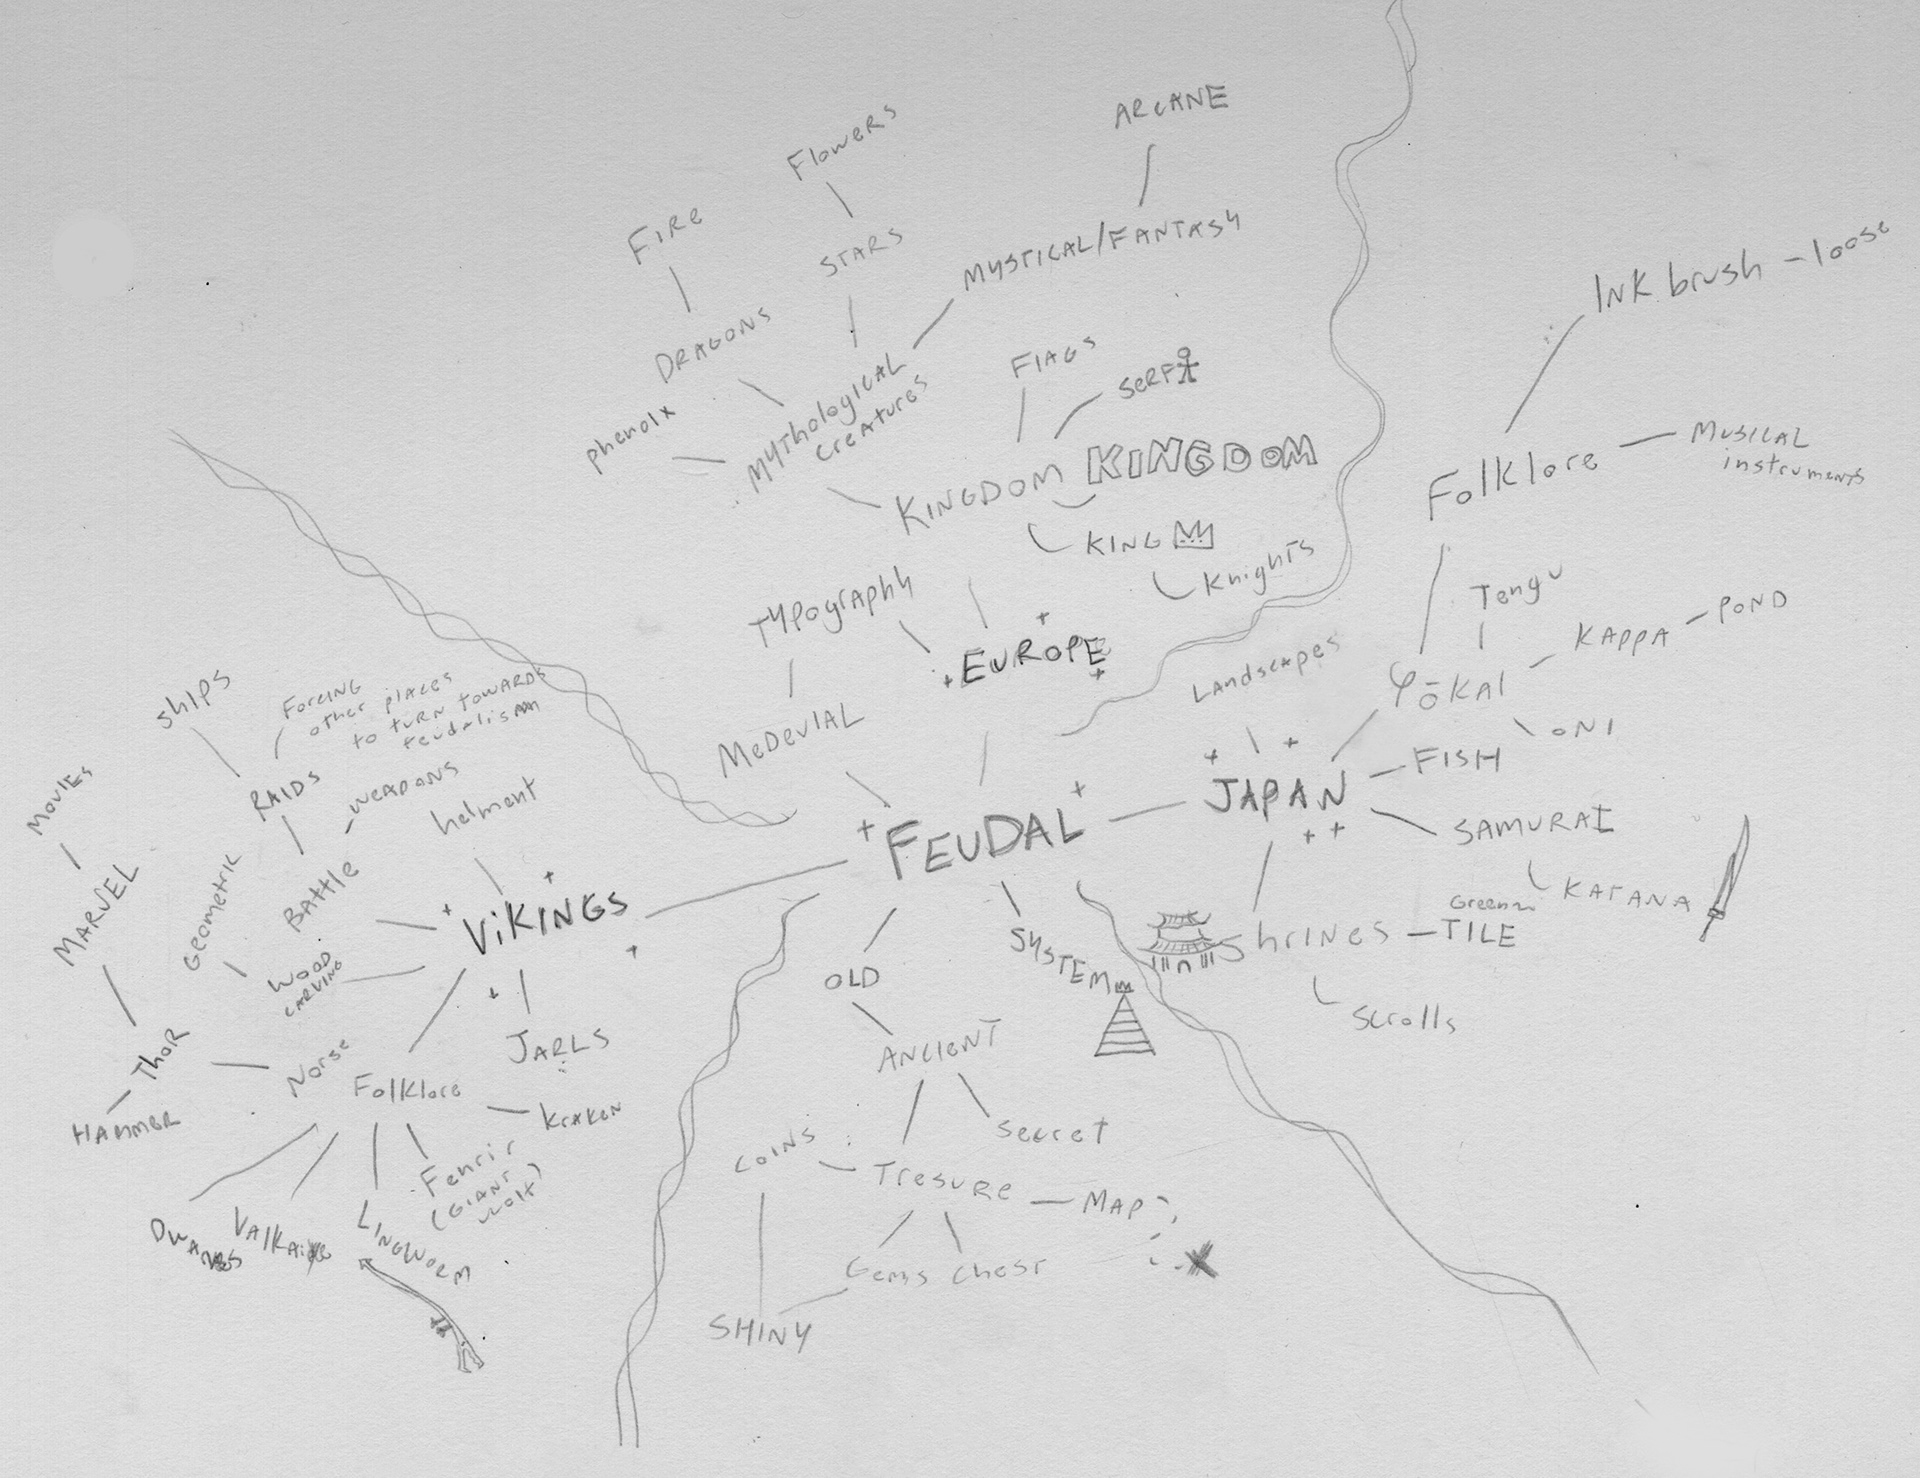 ARCANE
Flowers
FIRe
STARS
MYSTICAL/FANTASY
INK brush - loose
DRAGONS
FlAGS
SeRF
phenoix
MYThological
creatures
KINGDOM KINGDOM
MUSICAL
instruments
Folklore
KING
Knights
Typography
Tengu
KAPPA - POND
EUROPE
Landscapes
YōKAI
ONI
ships
Forcing
other places
to turn towards
feudalism
MeDevIAL
FISH
JAPAN
SAMURAI
RAIDS
WEAPONS
helment
MOVIES
FEUDAL
MARVEL
Geometric
BATTle
ViKINGS
KATANA
Green
ShrINES - TILE
SYSTEM
OLD
WOOD
CARVING
Scrolls
JARLS
ANCIENT
Thor
Norse
Folklore
HAMMER
KrAKEN
Secret
COINS
Tresure
MAP
Fenrir
(GIANT
Wolf)
DWARVES
LINGWORM
Gems
Chest
X
SHINY